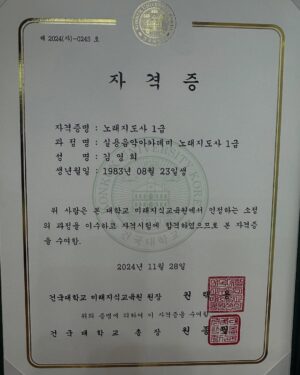 제 2024(사)-0245 호
자 격 증
자격증명 : 노래지도사 1급
과 정 명 : 실용음악아카데미 노래지도사 1급
성 명 : 김 영 희
생년월일 : 1983년 08월 23일생
위 사람은 본 대학교 미래지식교육원에서 인정하는 소정
의 과정을 이수하고 자격시험에 합격하였으므로 본 자격증
을 수여함.
2024년 11월 28일
건국대학교 미래지식교육원 원장
위의 증명에 의하여 이 자격증을 수여함
건 국 대 학 교 총 장 원 종 필